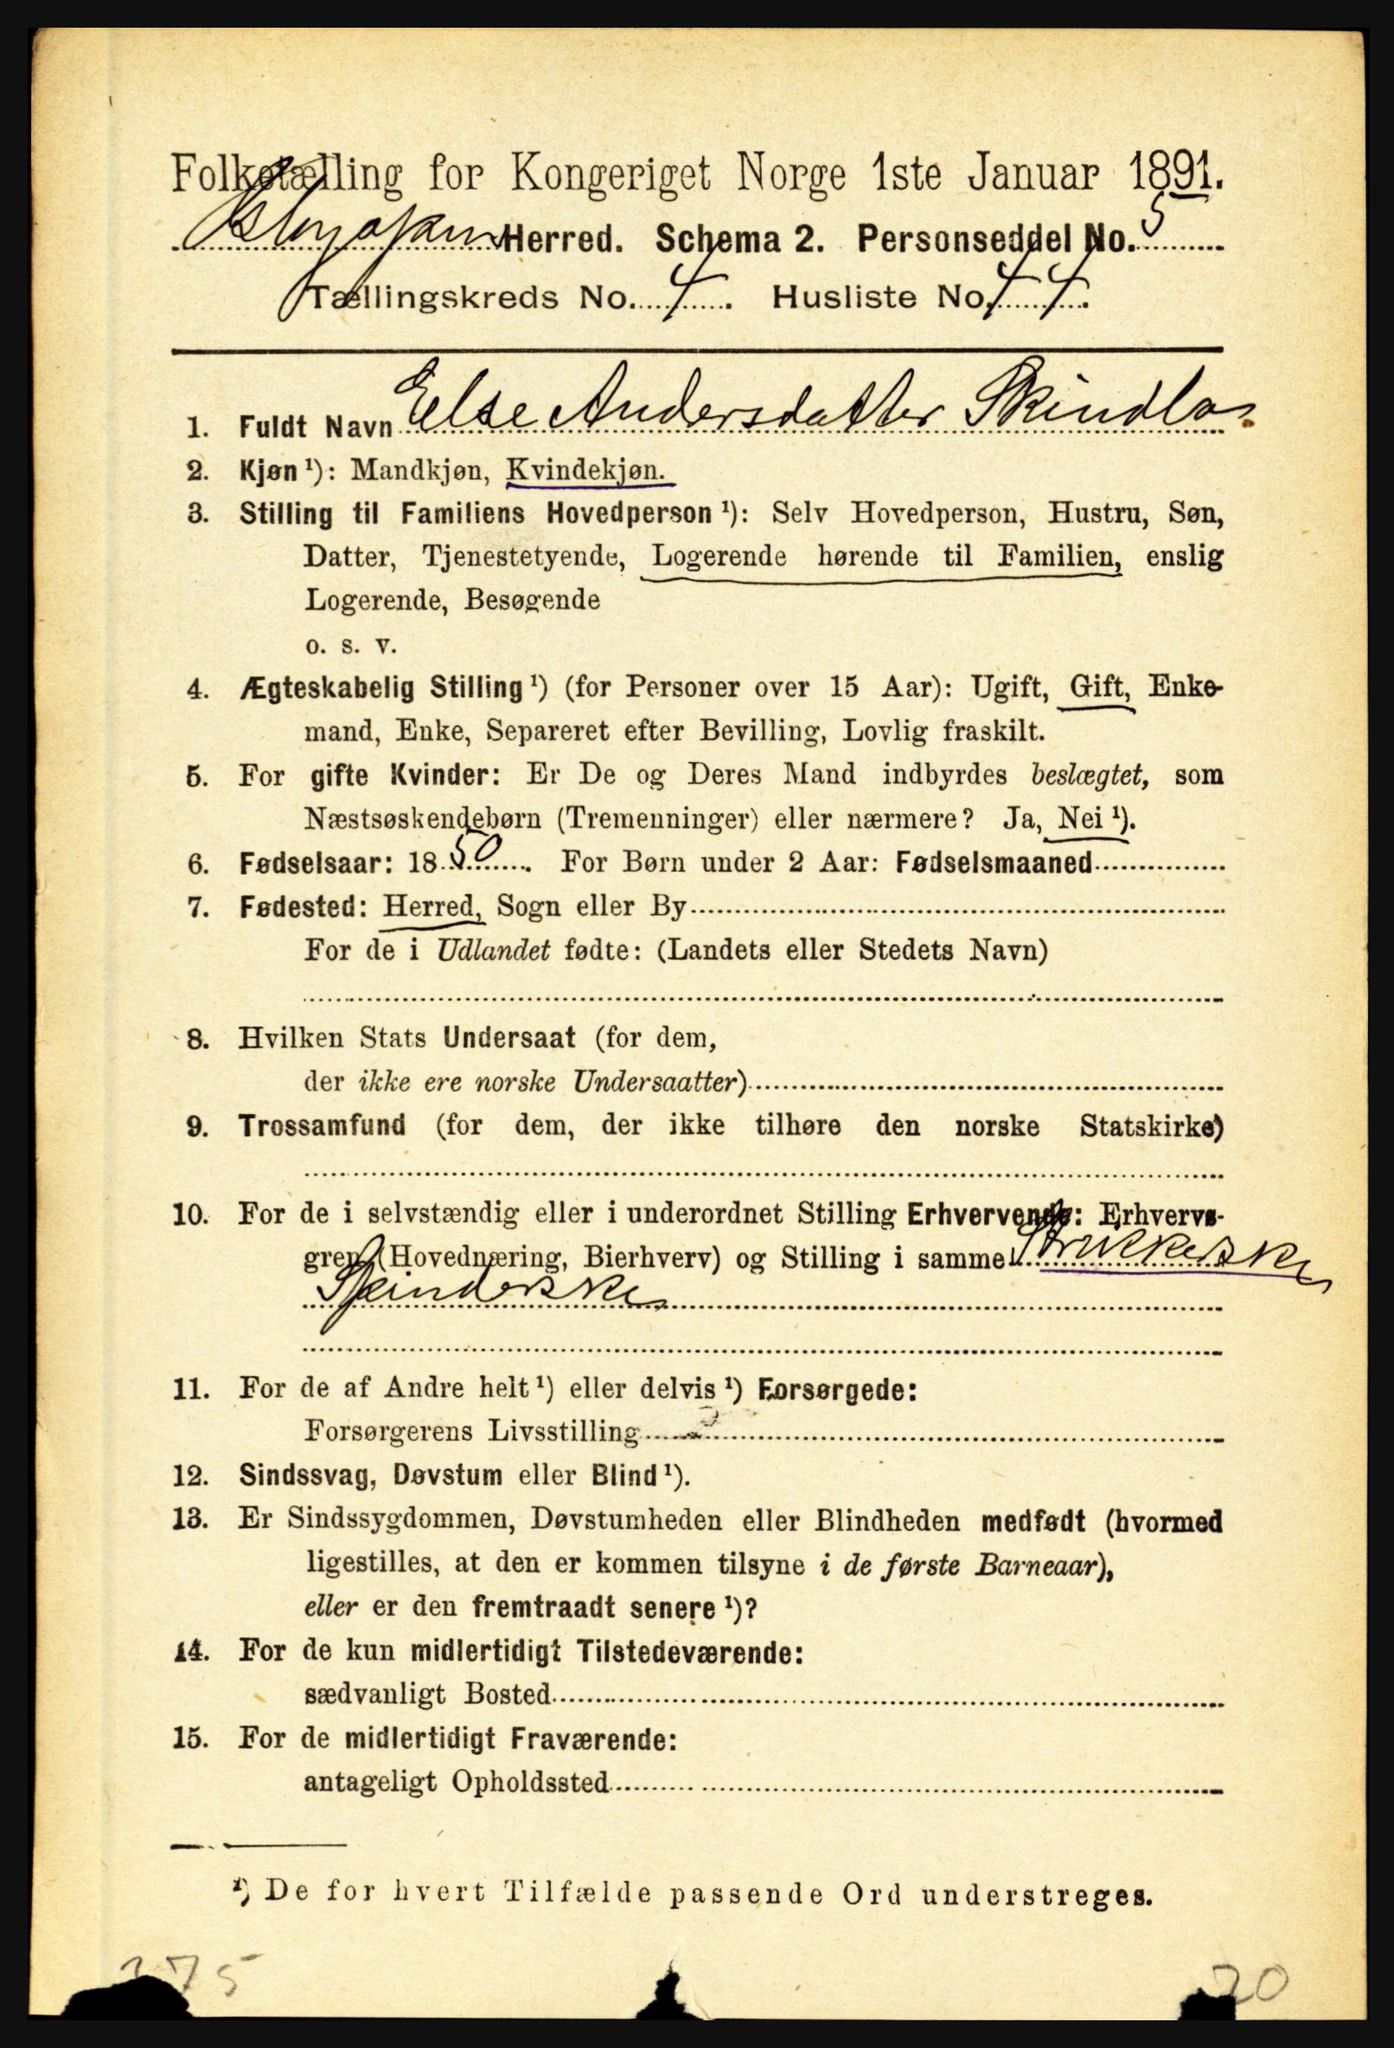 Folketælling for Kongeriget Norge 1ste Januar 1891.
Herred. Schema 2. Personseddel No. 5
Tællingskreds No. 4. Husliste No. 44.
1. Fuldt Navn Else Andersdatter Skindlo
2. Kjøn ¹): Mandkjøn, Kvindekjøn.
3. Stilling til Familiens Hovedperson ¹): Selv Hovedperson, Hustru, Søn,
Datter, Tjenestetyende, Logerende hørende til Familien, enslig
Logerende, Besøgende
o. s. v.
4. Ægteskabelig Stilling ¹) (for Personer over 15 Aar): Ugift, Gift, Enke-
mand, Enke, Separeret efter Bevilling, Lovlig fraskilt.
5. For gifte Kvinder: Er De og Deres Mand indbyrdes beslægtet, som
Næstsøskendebørn (Tremenninger) eller nærmere? Ja, Nei ¹).
6. Fødselsaar: 1850. For Børn under 2 Aar: Fødselsmaaned
7. Fødested: Herred, Sogn eller By
For de i Udlandet fødte: (Landets eller Stedets Navn)
8. Hvilken Stats Undersaat (for dem,
der ikke ere norske Undersaatter)
9. Trossamfund (for dem, der ikke tilhøre den norske Statskirke)
10. For de i selvstændig eller i underordnet Stilling Erhvervende: Erhvervs-
gren (Hovednæring, Bierhverv) og Stilling i samme Strikkerske
Spinderske
11. For de af Andre helt ¹) eller delvis ¹) Forsørgede:
Forsørgerens Livsstilling
12. Sindssvag, Døvstum eller Blind ¹).
13. Er Sindssygdommen, Døvstumheden eller Blindheden medfødt (hvormed
ligestilles, at den er kommen tilsyne i de første Barneaar),
eller er den fremtraadt senere ¹)?
14. For de kun midlertidigt Tilstedeværende:
sædvanligt Bosted
15. For de midlertidigt Fraværende:
antageligt Opholdssted
¹) De for hvert Tilfælde passende Ord understreges.
375 20